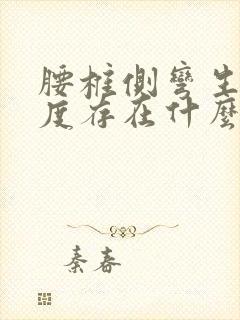 腰椎側彎生
度存在什麼
秦春